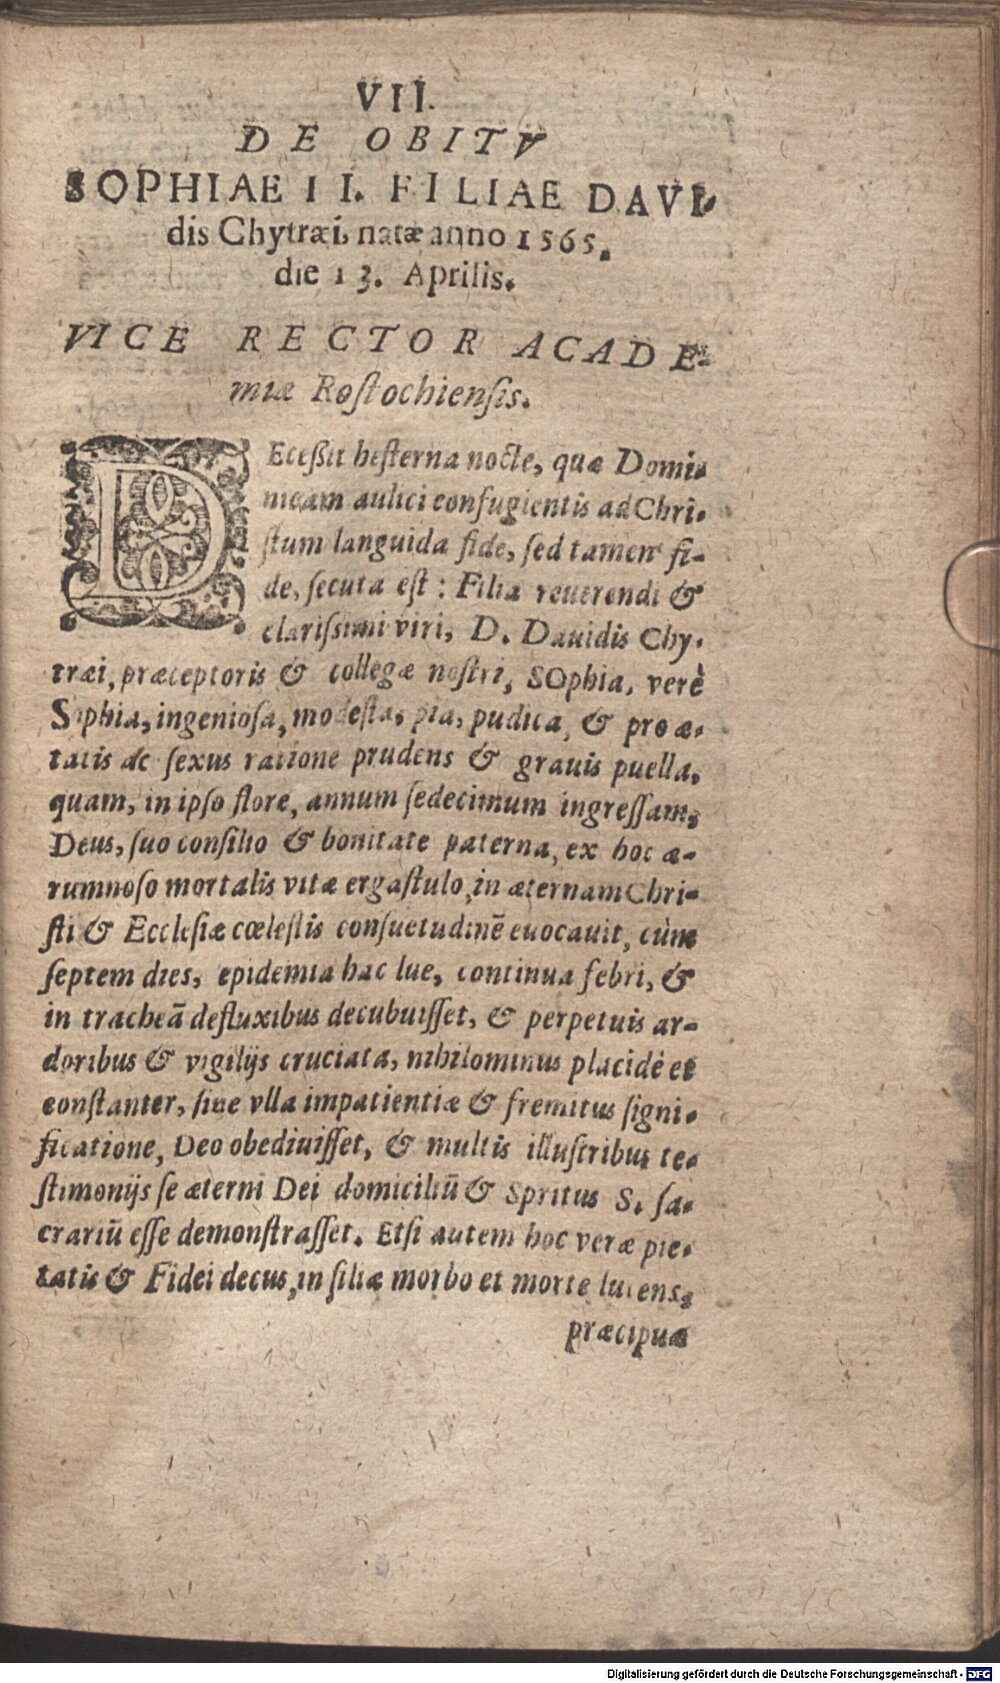 VII.
DE OBITV
SOPHIAE II. FILIAE DAVI-
dis Chytræi, natæ anno 1565.
die 13. Aprilis.
VICE RECTOR ACADE-
miæ Rostochiensis.
DEceßit hesterna nocte, quæ Domi-
nicam aulici confugientis ad Chri-
stum languida fide, sed tamen fi-
de, secuta est: Filia reuerendi &
clarissimi viri, D. Dauidis Chy-
træi, præceptoris & collegæ nostri, SOphia, verè
Sophia, ingeniosa, modesta, pia, pudica, & pro æ-
tatis ac sexus ratione prudens & grauis puella,
quam, in ipso flore, annum sedecimum ingressam,
Deus, suo consilio & bonitate paterna, ex hoc æ-
rumnoso mortalis vitæ ergastulo, in æternam Chri-
sti & Ecclesiæ cœlestis consuetudinē euocauit, cùm
septem dies, epidemia hac lue, continua febri, &
in tracheā defluxibus decubuisset, & perpetuis ar-
doribus & vigilijs cruciata, nihilominus placidè et
constanter, sine vlla impatientiæ & fremitus signi-
ficatione, Deo obediuisset, & multis illustribus te-
stimonijs se æterni Dei domiciliū & Spritus S. sa-
crariū esse demonstrasset. Etsi autem hoc veræ pie-
tatis & Fidei decus, in filiæ morbo et morte lucens,
præcipuæ
Digitalisierung gefördert durch die Deutsche Forschungsgemeinschaft - DFG